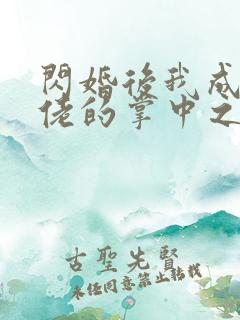 閃婚後我成
佬的掌中之
古聖先賢
未經同意禁止轉載